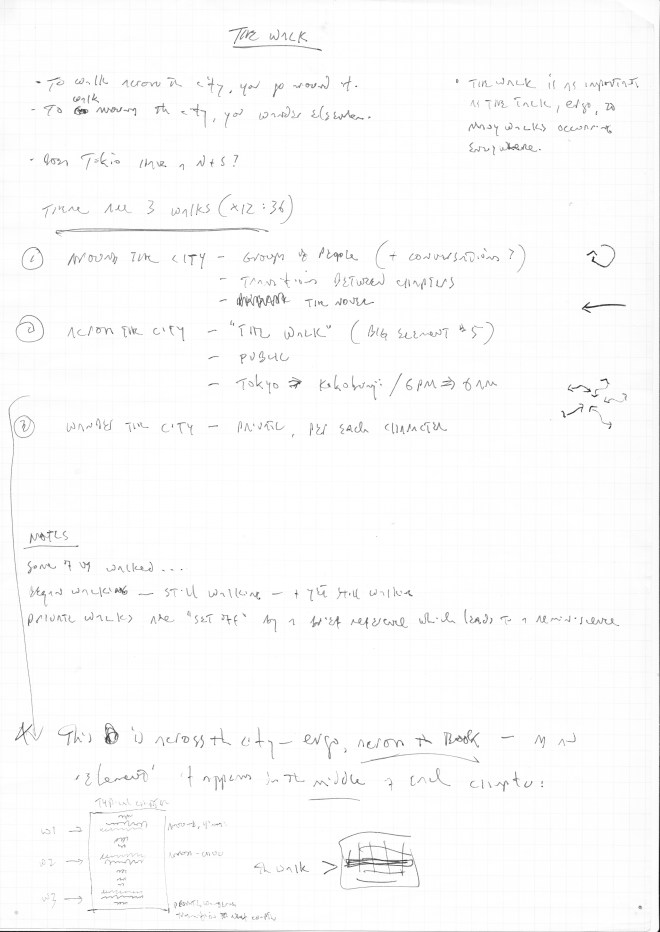 THE WALK
· To walk across the city, you go round it.
· To walk moving the city, you wander elsewhere.
· THE WALK IS AS IMPORTANT
AS THE TALK, ergo, to
many walks occurring
everywhere.
· Does Tokio have a N+S?
THERE ARE 3 WALKS (x12 = 36)
① AROUND THE CITY - GROUPS OF PEOPLE (+ CONVERSATIONS?)
- TRANSITIONS BETWEEN CHAPTERS
- THE NOVEL
② ACROSS THE CITY - "THE WALK" (BIG ELEMENT # 5)
- PUBLIC
- TOKYO ⇒ Kokobunji / 6 PM ⇒ 6 AM
③ WANDER THE CITY - PRIVATE, PER EACH CHARACTER
NOTES
Some of us walked...
Began walking — still walking — + yet still walking
PRIVATE WALKS ARE "SET OFF" by a brief reference which leads to a reminiscence
This is across the city — ergo, across the Book — as an
'Element' it appears in the middle of each chapter:
TYPICAL CHAPTER
W1 →
W2 →
W3 →
transition to next chapter
5th walk >